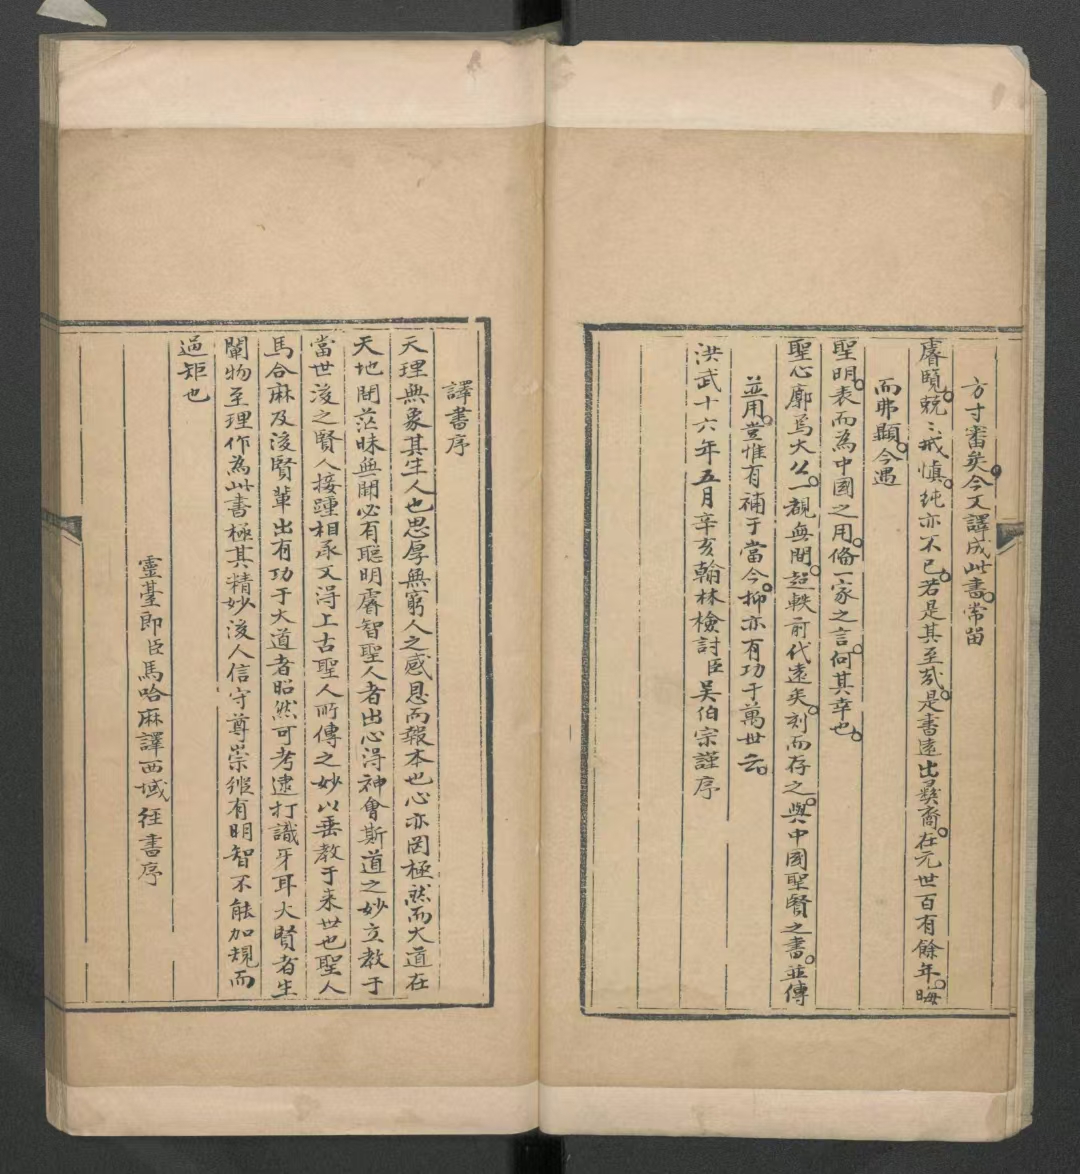 方寸審矣今又譯成此書常留
睿覽兢〻戒慎純亦不已若是其至哉是書遠出彝裔在元世百有餘年晦
而弗顯今遇
聖明表而為中國之用俻一家之言何其幸也
聖心廓焉大公一視無間超軼前代遠矣刻而存之與中國聖賢之書並傳
並用豈惟有補于當今抑亦有功于萬世云
洪武十六年五月辛亥翰林檢討臣吳伯宗謹序
譯書序
天理無象其生人也思厚無窮人之感恩而報本也心亦罔極然而大道在
天地間茫昧無聞必有聰明睿智聖人者出心淂神會斯道之妙立教于
當世後之賢人接踵相承又淂上古聖人所傳之妙以垂教于来世也聖人
馬合麻及後賢輩出有功于大道者昭然可考逮打識牙耳大賢者生
闡物至理作為此書極其精妙後人信守尊崇縱有明智不能加規而
過矩也
靈臺郎臣馬哈麻譯西域徃書序